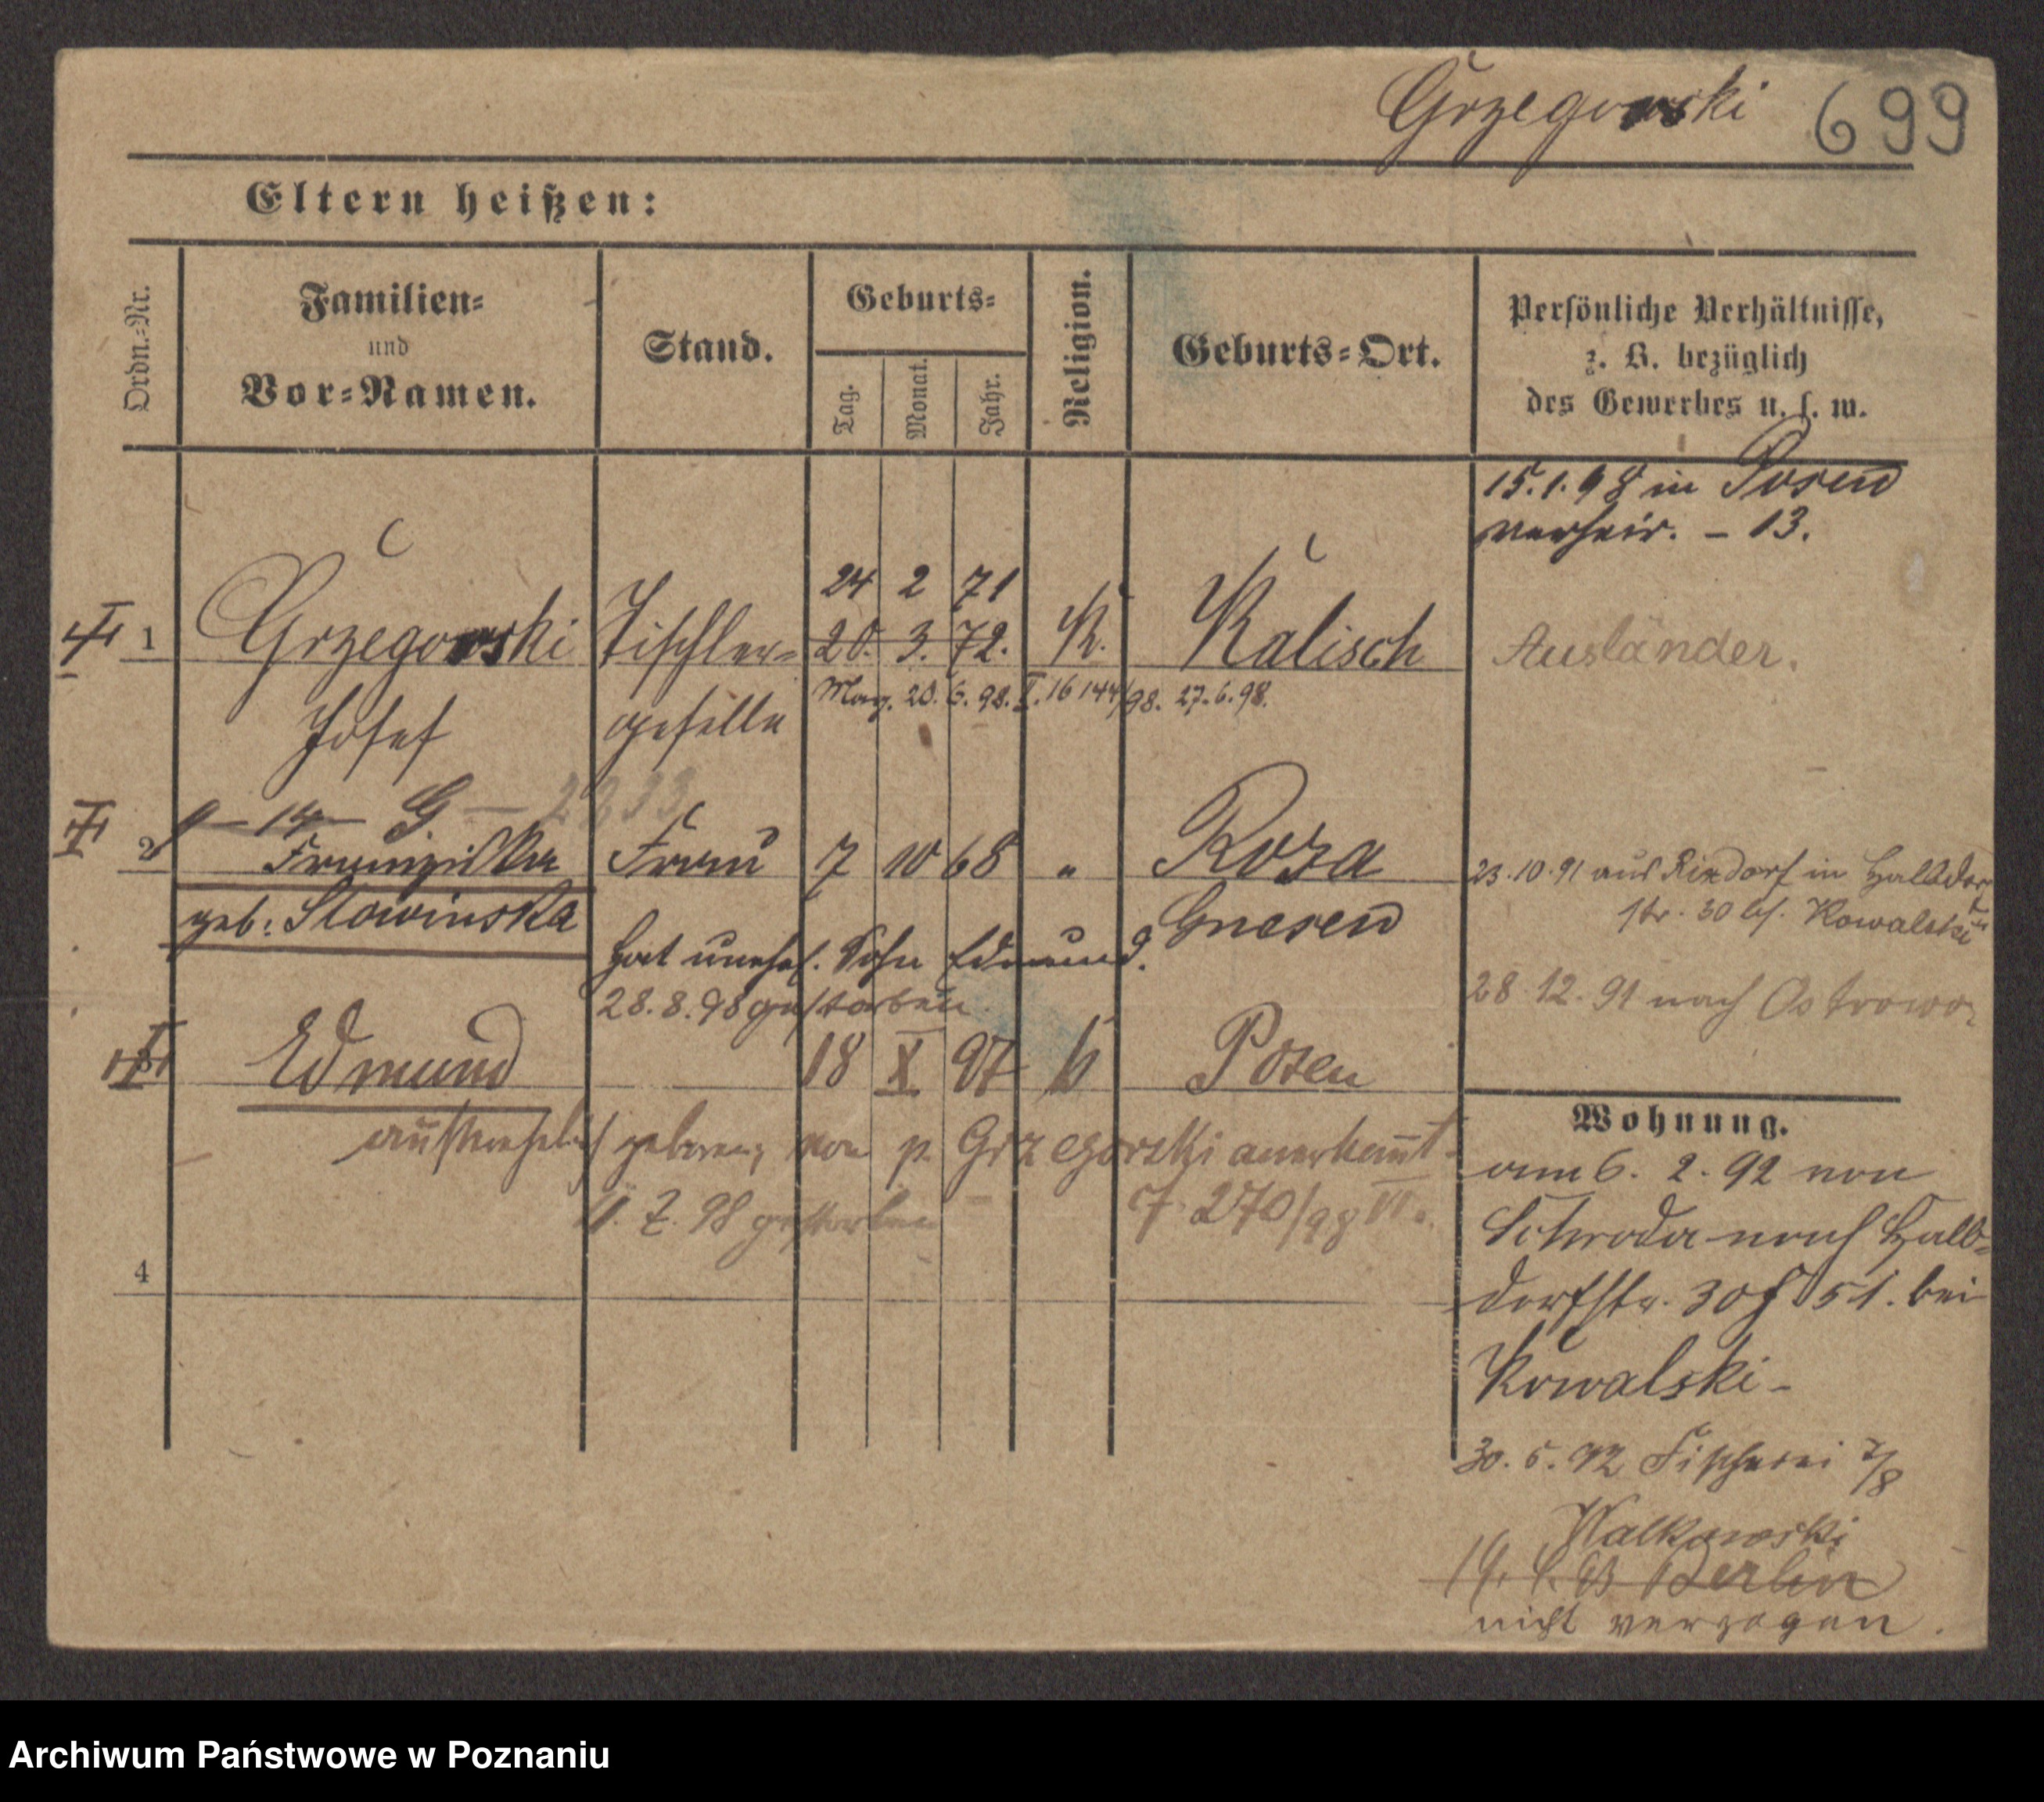 Grzegorski 699
Eltern heißen:
Ordn.-Nr.
Familien-
und
Vor-Namen.
Stand.
Geburts-
Tag.
Monat.
Jahr.
Religion.
Geburts-Ort.
Persönliche Verhältnisse,
z. B. bezüglich
des Gewerbes u. s. w.
15.1.98 in Posen
verheir. – 13.
1 Grzegorski Tischler- 24 2 71 K. Kalisch Ausländer.
20. 3. 72.
Josef geselle Mag. 20. 6. 98. I. 16 144/98. 27.6.98.
14 G. — 2333
2 Franziska Frau 7 10 68 " Roza
geb. Slowinska Gnesen
23.10.91 aus Rixdorf in Halbdorf
str. 30 bei Kowalski
Hat unehel. Sohn Edmund.
28.8.98 gestorben.
28.12.91 nach Ostrowo
Edmund 18 X 97 k Posen
außerehelich geboren, von p. Grzegorski anerkannt.
11. 7. 98 gestorben 7. 270/98 VI.
4
Wohnung.
am 6. 2. 92 von
Schroda nach Halb-
dorfstr. 30 51. bei
Kowalski –
30. 5. 92 Fischerei 7/8
Walkowski
Berlin
nicht verzogen.
Archiwum Państwowe w Poznaniu